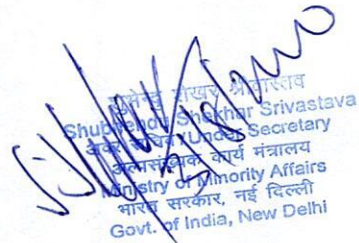 शुभेन्दु शेखर श्रीवास्तव
Shubhendu Shekhar Srivastava
Under Secretary
अल्पसंख्यक कार्य मंत्रालय
Ministry of Minority Affairs
भारत सरकार, नई दिल्ली
Govt. of India, New Delhi